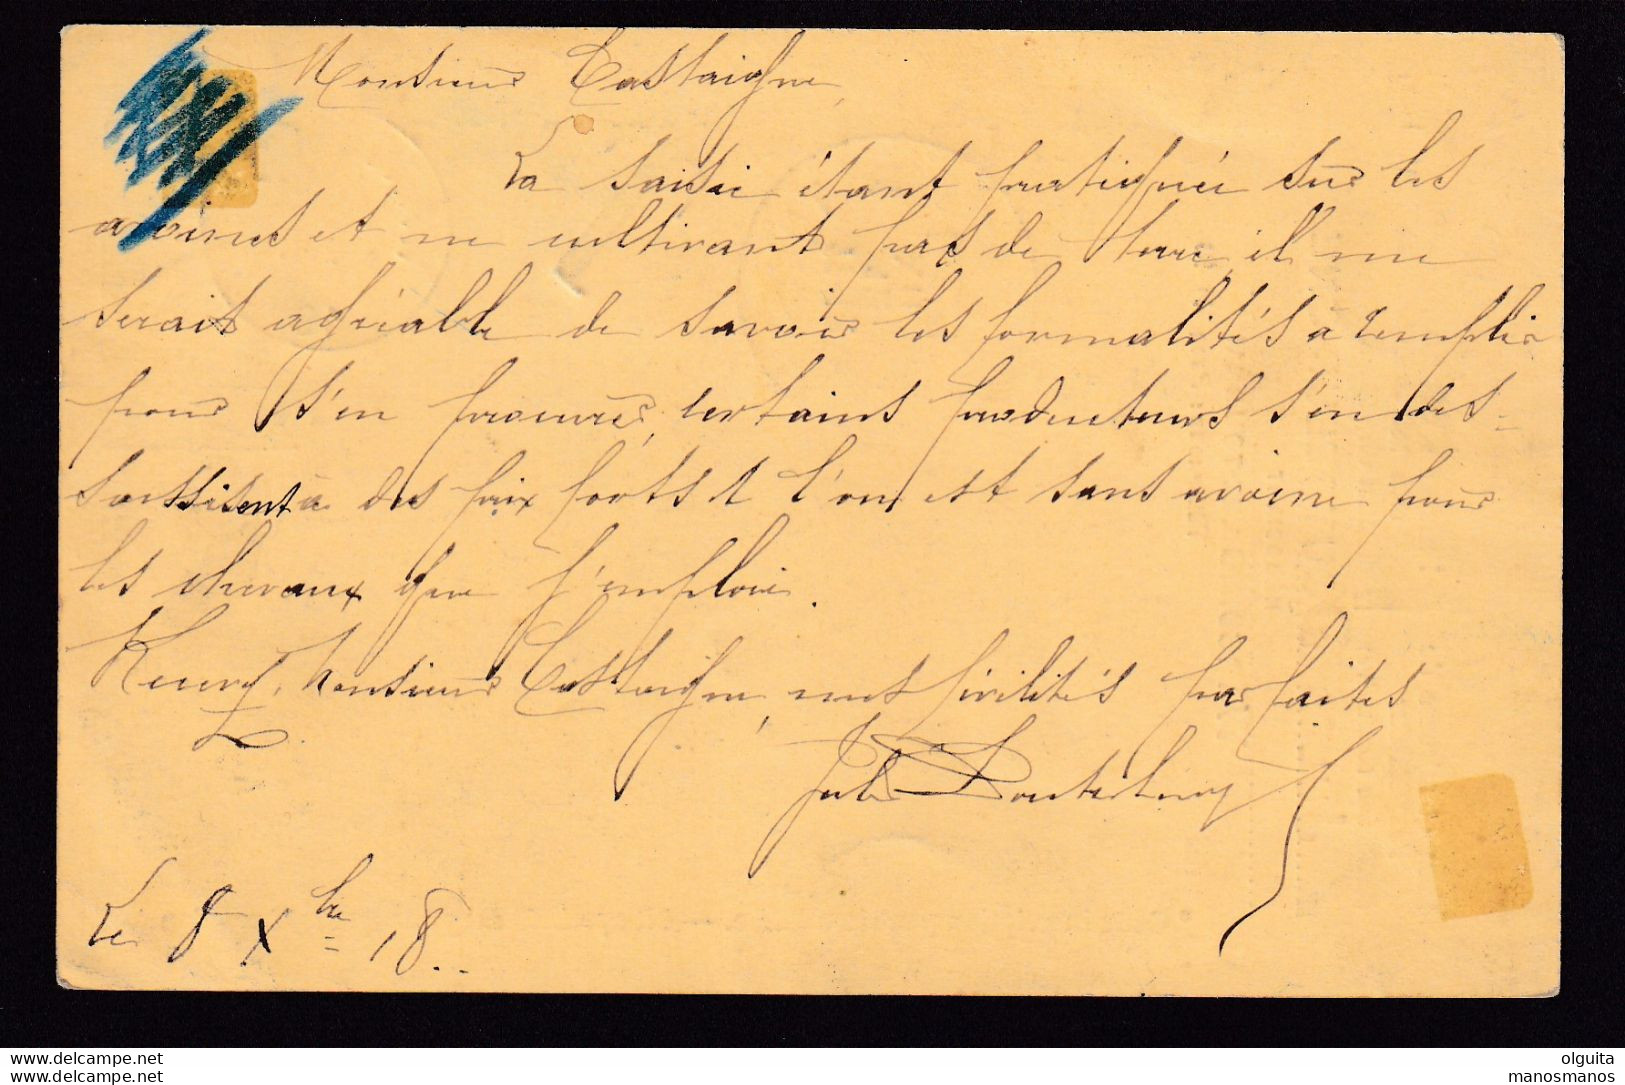 Monsieur Castaigne,
La saisie étant pratiquée sur les
avoines et ne cultivant pas de terre, il me
serait agréable de savoir les formalités à remplir
pour s'en procurer, certains producteurs s'en des-
saisissent à des prix forts & l'on est sans avoine pour
les chevaux que j'emploie.
Recevez, Monsieur Castaigne, mes civilités parfaites
Jules
Le 8 Xbre 18..
www.delcampe.net
www.delcampe.net
olguita
manosmanos